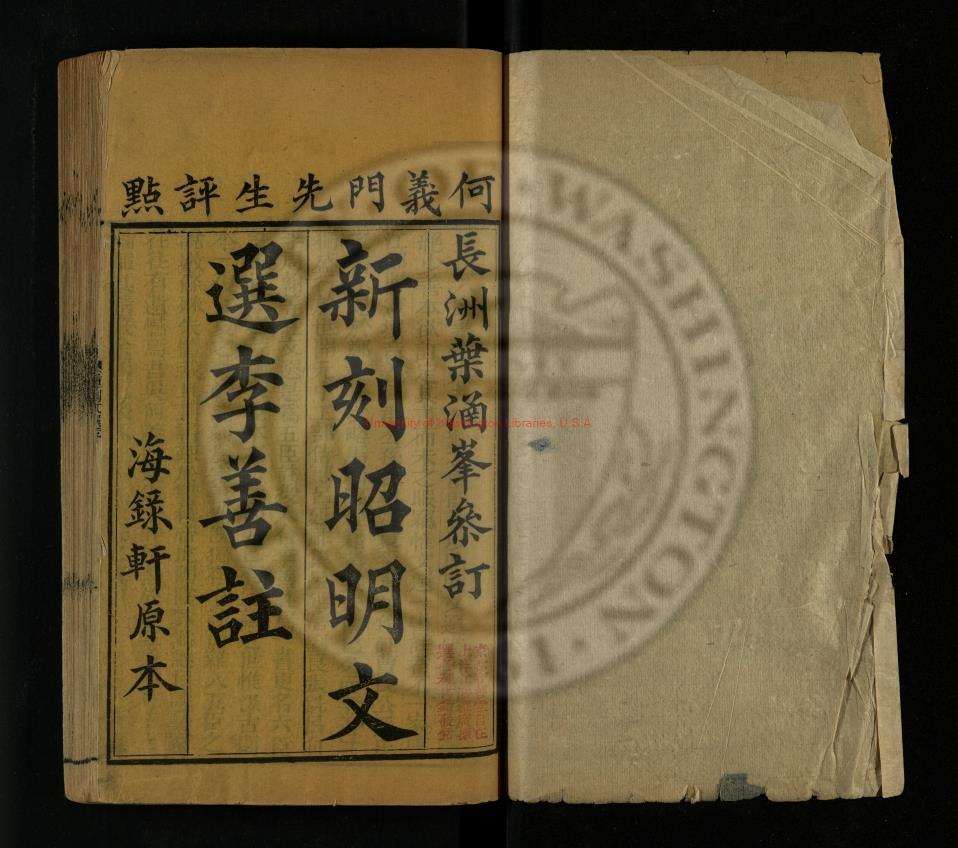 何義門先生評點
長洲葉涵峯叅訂
新刻昭明文
選李善註
海録軒原本
University of Washington Libraries, U.S.A
WASHINGTON